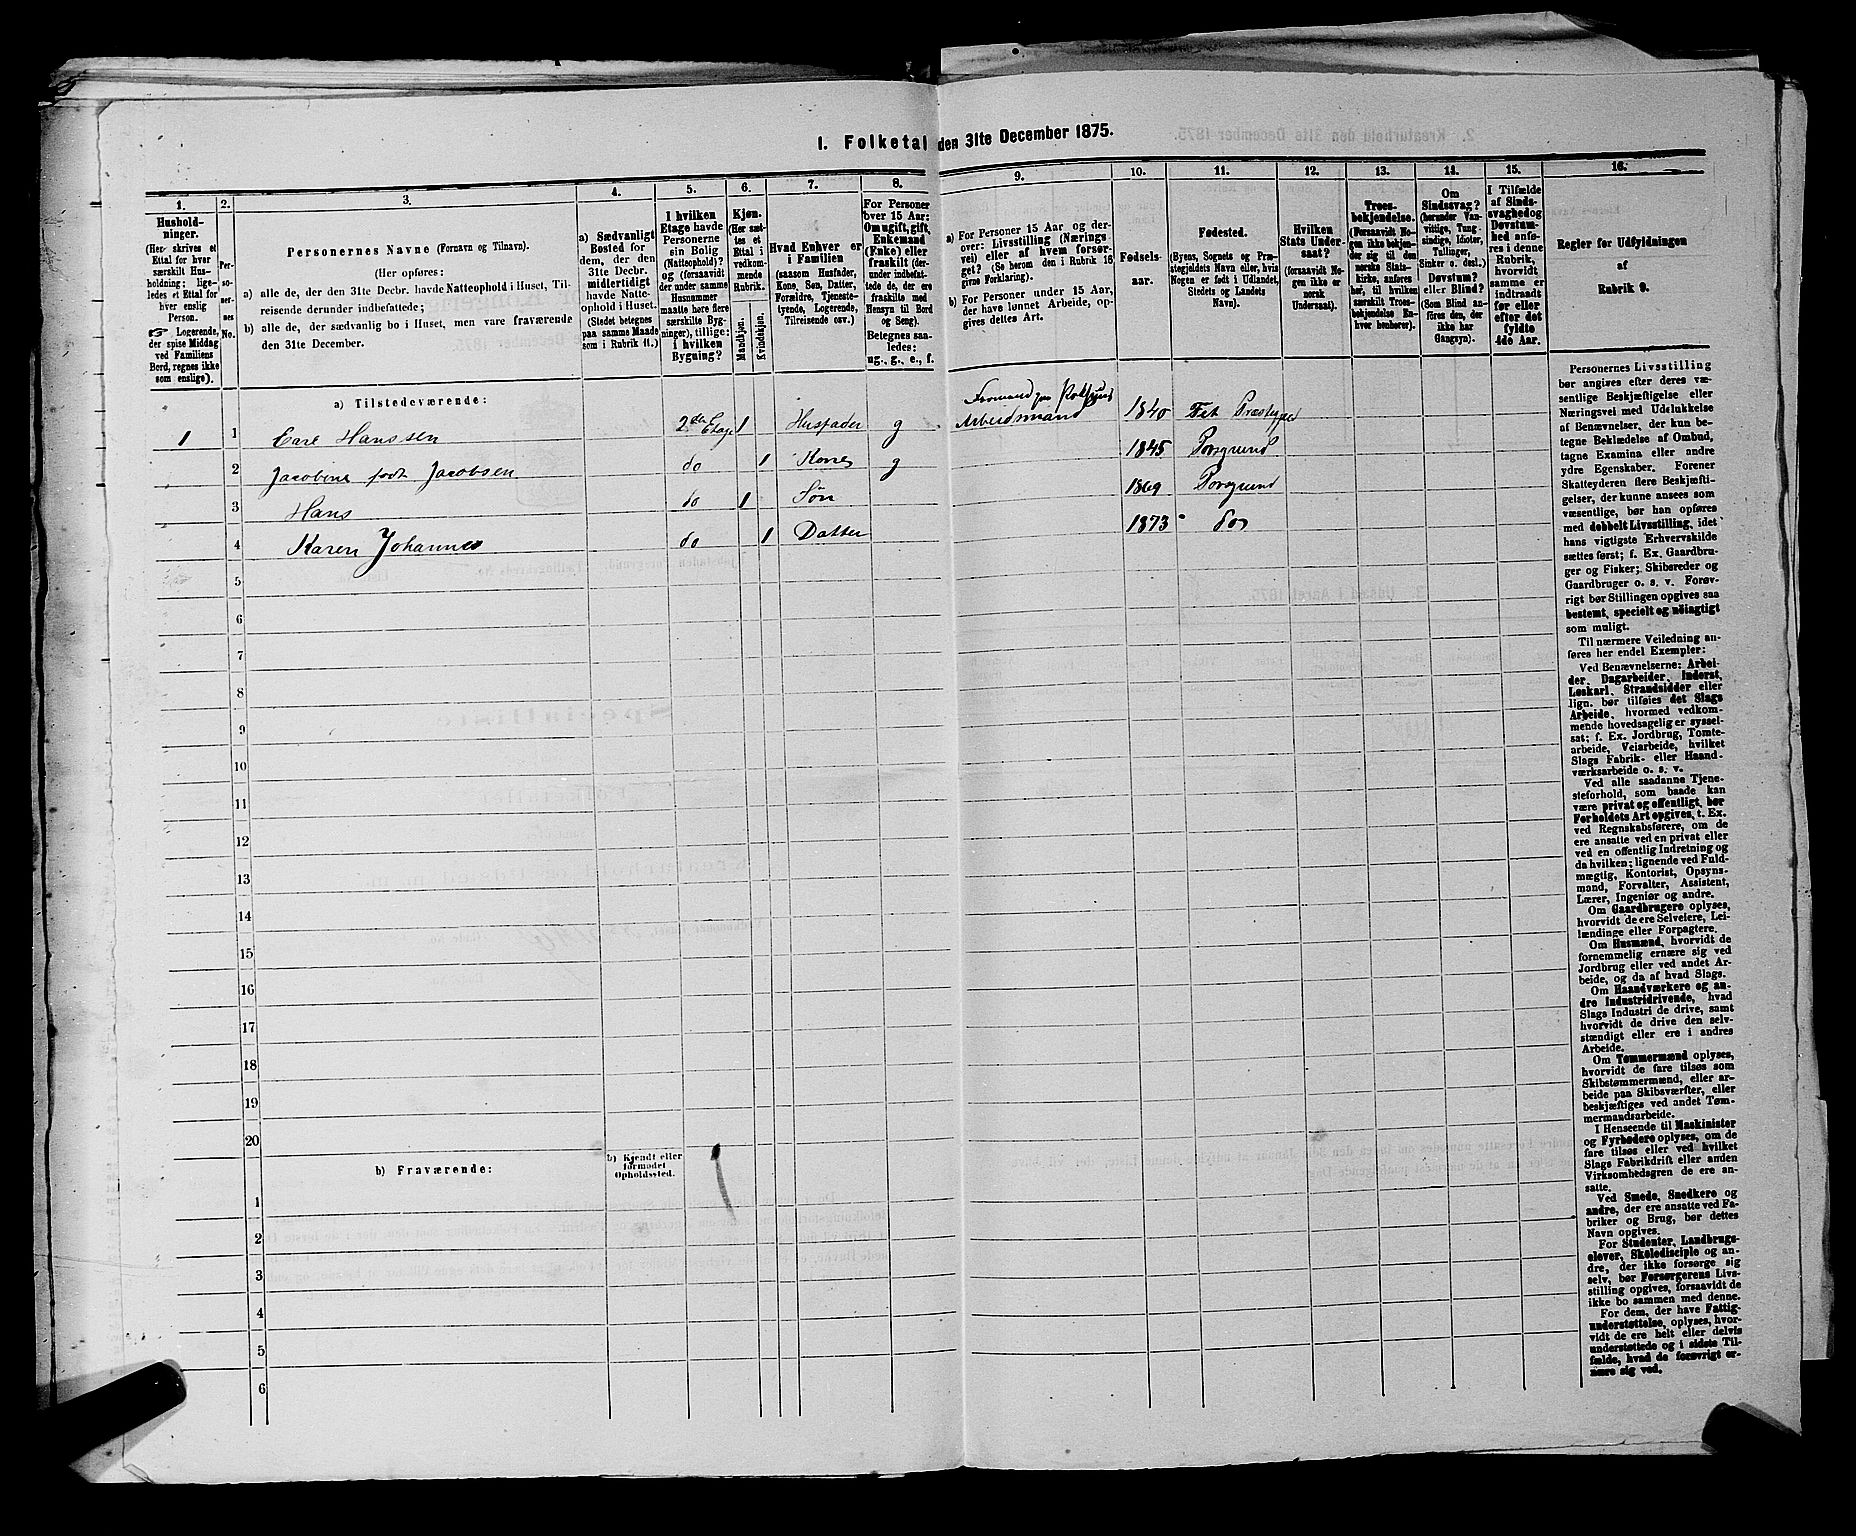 I. Folketal den 31te December 1875.
1. 2. 3. 4. 5. 6. 7. 8. 9. 10. 11. 12. 13. 14. 15. 16.
Hushold-
ninger.
(Her skrives et
Ettal for hver
særskilt Hus-
holdning; lige-
ledes et Ettal for
hver enslig
Person.
☞ Logerende,
der spise Middag
ved Familiens
Bord, regnes ikke
som enslige).
Per-
so-
ner-
nes
No.
Personernes Navne (Fornavn og Tilnavn).
(Her opføres:
a) alle de, der den 31te Decbr. havde Natteophold i Huset, Til-
reisende derunder indbefattede;
b) alle de, der sædvanlig bo i Huset, men vare fraværende
den 31te December.
a) Sædvanligt
Bosted for
dem, der den
31te Decbr.
midlertidigt
havde Natte-
ophold i Huset.
(Stedet betegnes
paa samme Maade
som i Rubrik 11.)
I hvilken
Etage havde
Personerne
sin Bolig
(Natteophold)?
og (forsaavidt
der under samme
Husnummer
maatte høre flere
særskilte Byg-
ninger), tillige:
i hvilken
Bygning?
Kjøn.
(Her sæt-
tes et
Ettal i
vedkom-
mende
Rubrik.
Mandkjøn.
Kvindekjøn.
Hvad Enhver er
i Familien
(saasom Husfader,
Kone, Søn, Datter,
Forældre, Tjeneste-
tyende, Logerende,
Tilreisende osv.)
For Personer
over 15 Aar:
Om ugift, gift,
Enkemand
(Enke) eller
fraskilt (der-
under indbefat-
tede de, der ere
fraskilte med
Hensyn til Bord
og Seng).
Betegnes saa-
ledes:
ug., g., e., f.
a) For Personer 15 Aar og der-
over: Livsstilling (Nærings-
vei) eller af hvem forsør-
get? (Se herom den i Rubrik 16
givne Forklaring).
b) For Personer under 15 Aar,
der have lønnet Arbeide, op-
gives dettes Art.
Fødsels-
aar.
Fødested.
(Byens, Sognets og Præ-
stegjeldets Navn eller, hvis
Nogen er født i Udlandet,
Stedets og Landets
Navn).
Hvilken
Stats Under-
saat?
(forsaavidt No-
gen ikke er
norsk
Undersaat).
Troes-
bekjendelse.
(Forsaavidt No-
gen ikke bekjen-
der sig til den
norske Stats-
kirke, anføres
her, til hvilken
særskilt Troes-
bekjendelse En-
hver henhører).
Om
Sindssvag?
(herunder Van-
vittige, Tung-
sindige, Idioter,
Tullinger,
Sinker o. desl.)
Døvstum?
eller Blind?
(Som Blind an-
føres den, der
ikke har
Gangsyn).
I Tilfælde
af Sinds-
svaghed og
Døvstum-
hed anfø-
res i denne
Rubrik,
hvorvidt
samme er
indtraadt
før eller
efter det
fyldte
4de Aar.
Regler for Udfyldningen
af
Rubrik 9.
a) Tilstedeværende:
1 1 Carl Hanssen 2den Etage 1 Husfader g Formand Arbeidsmand 1840 Præstegjæld
2 Jacobine født Jacobsen do 1 Kone g 1845 Porsgrund
3 Hans do 1 Søn 1869 Porsgrund
4 Karen Johanne do 1 Datter 1873 do
5
6
7
8
9
10
11
12
13
14
15
16
17
18
19
20
b) Fraværende:
b) Kjendt eller
formodet
Opholdssted.
1
2
3
4
5
6
Personernes Livsstilling
bør angives efter deres væ-
sentlige Beskjæftigelse eller
Næringsvei med Udelukkelse
af Benævnelser, der kun be-
tegne Beklædelse af Ombud,
tagne Examina eller andre
ydre Egenskaber. Forener
Skatteyderen flere Beskjæfti-
gelser, der kunne ansees som
væsentlige, bør han opføres
med dobbelt Livsstilling, idet
hans vigtigste Erhvervskilde
sættes først; f. Ex. Gaardbru-
ger og Fisker; Skibsreder og
Gaardbruger o. s. v. Forøv-
rigt bør Stillingen opgives saa
bestemt, specielt og nöiagtigt
som muligt.
Til nærmere Veiledning an-
føres her endel Exempler:
Ved Benævnelserne: Arbei-
der, Dagarbeider, Inderst,
Løskarl, Strandsidder eller
lign. bør tilføies det Slags
Arbeide, hvormed vedkom-
mende hovedsagelig er syssel-
sat; f. Ex. Jordbrug, Tomte-
arbeide, Veiarbeide, hvilket
Slags Fabrik- eller Haand-
værksarbeide o. s. v.
Ved alle saadanne Tjene-
steforhold, som baade kan
være privat og offentligt, bør
Forholdets Art opgives, t. Ex.
ved Regnskabsførere, om de
ere ansatte ved en privat eller
ved en offentlig Indretning og
da hvilken; lignende ved Fuld-
mægtig, Kontorist, Opsyns-
mand, Forvalter, Assistent,
Lærer, Ingeniør og andre.
Om Gaardbrugere oplyses,
hvorvidt de ere Selveiere, Lei-
lændinge eller Forpagtere.
Om Husmænd, hvorvidt de
fornemmelig ernære sig ved
Jordbrug eller ved andet Ar-
beide, og da af hvad Slags.
Om Haandværkere og an-
dre Industridrivende, hvad
Slags Industri de drive, samt
hvorvidt de drive den selv-
stændigt eller ere i andres
Arbeide.
Om Tømmermænd oplyses,
hvorvidt de fare tilsøs som
Skibstømmermænd, eller ar-
beide paa Skibsværfter, eller
beskjæftiges ved andet Tøm-
mermandsarbeide.
I Henseende til Maskinister
og Fyrbødere oplyses, om de
fare tilsøs eller ved hvilket
Slags Fabrikdrift eller anden
Virksomhedsgren de ere an-
satte.
Ved Smede, Snedkere og
andre, der ere ansatte ved Fa-
briker og Brug, bør dettes
Navn opgives.
For Studenter, Landbrugs-
elever, Skoledisciple og an-
dre, der ikke forsørge sig
selv, bør Forsørgerens Livs-
stilling opgives, forsaavidt de
ikke bo sammen med denne.
For dem, der have Fattig-
understøttelse, oplyses, hvor-
vidt de ere helt eller delvis
understøttede og i sidste Til-
fælde, hvad de forøvrigt er-
nære sig ved.